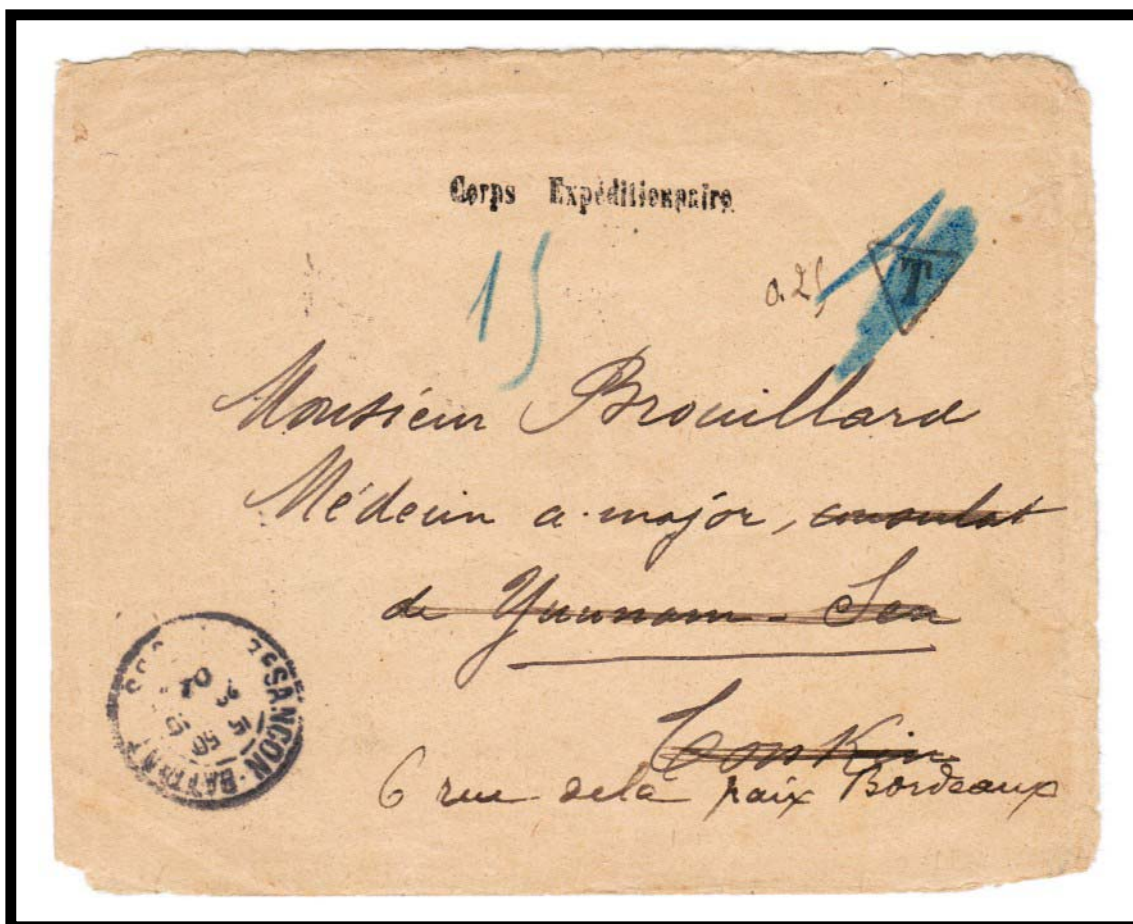 Corps Expéditionnaire
15
0.25
T
Monsieur Brouillard
Médecin a-major, consulat
de Yunnam-Sen
Tonkin
6 rue de la paix Bordeaux
BESANCON-BATTANT